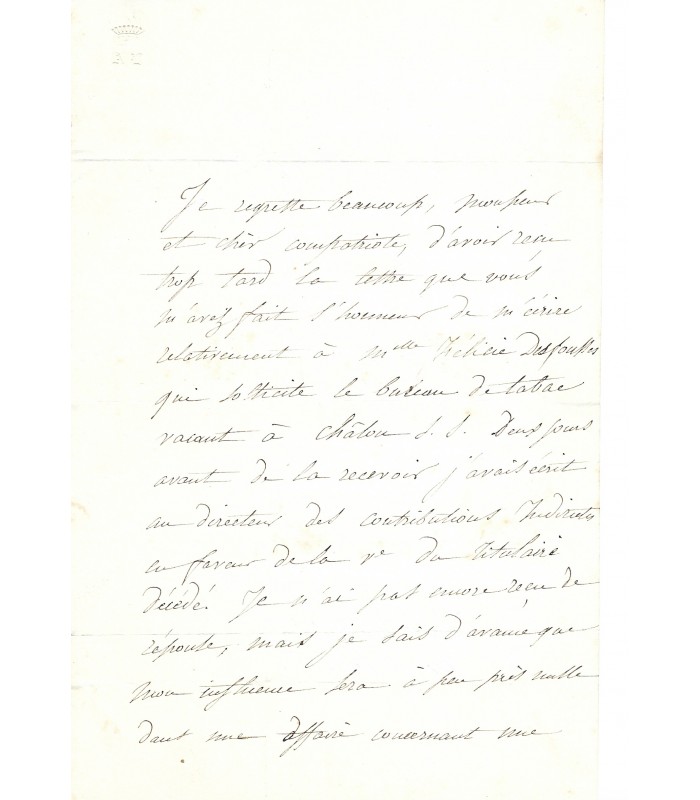 Je regrette beaucoup, Monsieur
et cher compatriote, d'avoir recu
trop tard la lettre que vous
m'avez fait l'honneur de m'écrire
relativement à Mlle Félicie
qui sollicite le bureau de tabac
vacant à Châlon S. S. Deux jours
avant de la recevoir j'avais écrit
au directeur des contributions Indirectes
en faveur de la ve du titulaire
décédé. Je n'ai pas encore recu de
réponse, mais je sais d'avance que
mon influence sera à peu près nulle
dans une affaire concernant une